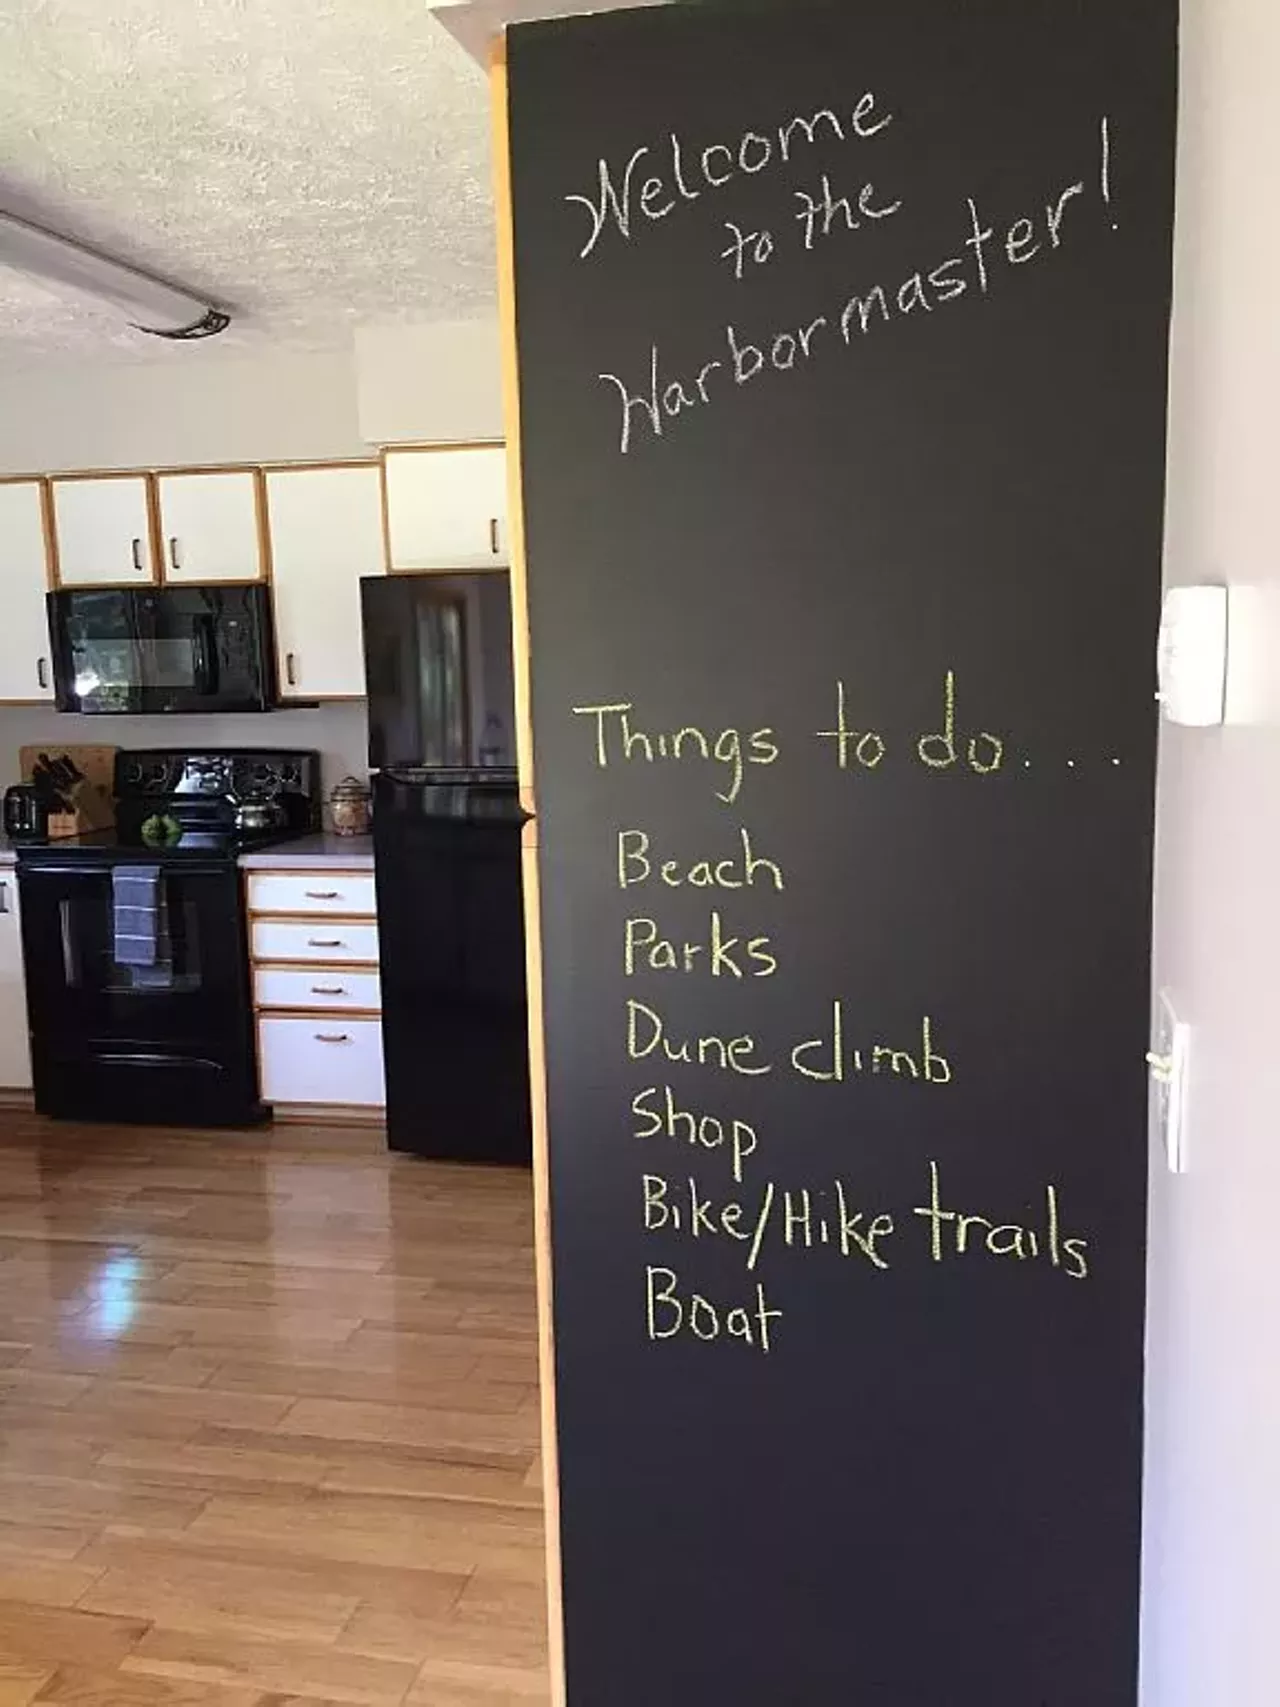 Welcome
to the
Harbormaster!
Things to do....
Beach
Parks
Dune climb
Shop
Bike/Hike trails
Boat